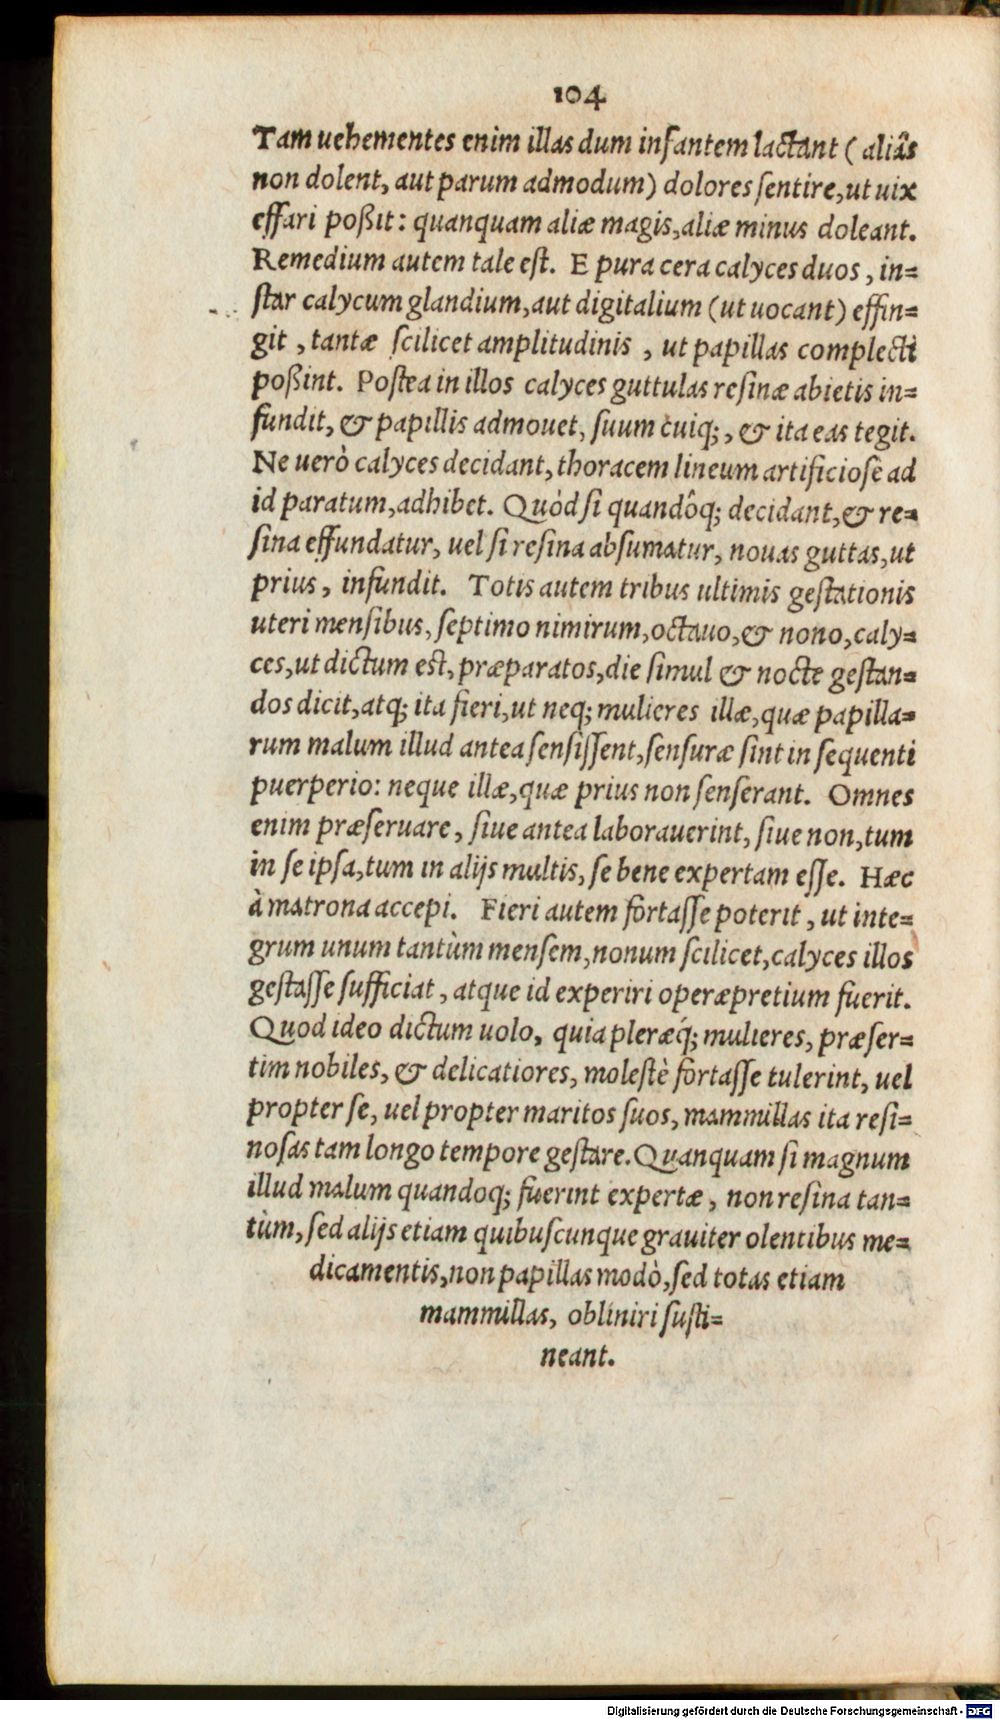 104
Tam uehementes enim illas dum infantem lactant ( aliâs
non dolent, aut parum admodum) dolores ſentire, ut uix
effari poßit: quanquam aliæ magis, aliæ minus doleant.
Remedium autem tale eſt. E pura cera calyces duos, in=
ſtar calycum glandium, aut digitalium (ut uocant) effin=
git, tantæ ſcilicet amplitudinis, ut papillas complecti
poßint. Poſtea in illos calyces guttulas reſinæ abietis in=
fundit, & papillis admouet, ſuum cuiq;, & ita eas tegit.
Ne uerò calyces decidant, thoracem lineum artificioſè ad
id paratum, adhibet. Quòd ſi quandôq; decidant, & re=
ſina effundatur, uel ſi reſina abſumatur, nouas guttas, ut
prius, infundit. Totis autem tribus ultimis geſtationis
uteri menſibus, ſeptimo nimirum, octauo, & nono, caly=
ces, ut dictum eſt, præparatos, die ſimul & nocte geſtan=
dos dicit, atq; ita fieri, ut neq; mulieres illæ, quæ papilla=
rum malum illud antea ſenſiſſent, ſenſuræ ſint in ſequenti
puerperio: neque illæ, quæ prius non ſenſerant. Omnes
enim præſeruare, ſiue antea laborauerint, ſiue non, tum
in ſe ipſa, tum in alijs multis, ſe bene expertam eſſe. Hæc
à matrona accepi. Fieri autem fortaſſe poterit, ut inte=
grum unum tantùm menſem, nonum ſcilicet, calyces illos
geſtaſſe ſufficiat, atque id experiri operæpretium fuerit.
Quod ideo dictum uolo, quia pleræq́; mulieres, præſer=
tim nobiles, & delicatiores, moleſtè fortaſſe tulerint, uel
propter ſe, uel propter maritos ſuos, mammillas ita reſi=
noſas tam longo tempore geſtare. Quanquam ſi magnum
illud malum quandoq; fuerint expertæ, non reſina tan=
tùm, ſed alijs etiam quibuſcunque grauiter olentibus me=
dicamentis, non papillas modò, ſed totas etiam
mammillas, obliniri ſuſti=
neant.
Digitalisierung gefördert durch die Deutsche Forschungsgemeinschaft - DFG